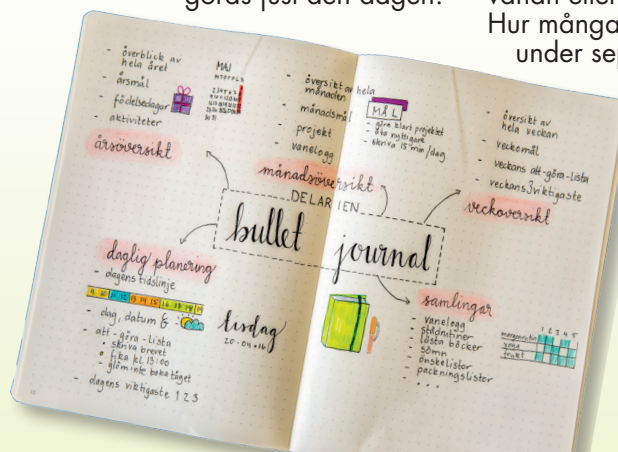 göras just den dagen.
vanan eller
Hur många
under sep
- överblick av
hela året
- årsmål
- födelsedagar
- aktiviteter
årsöversikt
MAJ
M T O T F L S
- översikt av hela
månaden
- månadsmål
- projekt
- vanelogg
månadsöversikt
MÅL
- göra klart projektet
- äta nyttigare
- skriva 15 min/dag
- översikt av
hela veckan
- veckomål
- veckans att-göra-lista
- veckans 3 viktigaste
veckoöversikt
DELAR I EN
bullet journal
daglig planering
- dagens tidslinje
9 10 11 12 13 14 15 16 17 18 19
- dag, datum &
- att-göra-lista
• skriva brevet
• fika kl. 13:00
• glöm inte boka tåget
- dagens viktigaste 1 2 3
tisdag
20·04·16
samlingar
- vanelogg
- städrutiner
- lästa böcker
- sömn
- önskelistor
- packningslistor
- ...
1 2 3 4 5
yoga
frukt